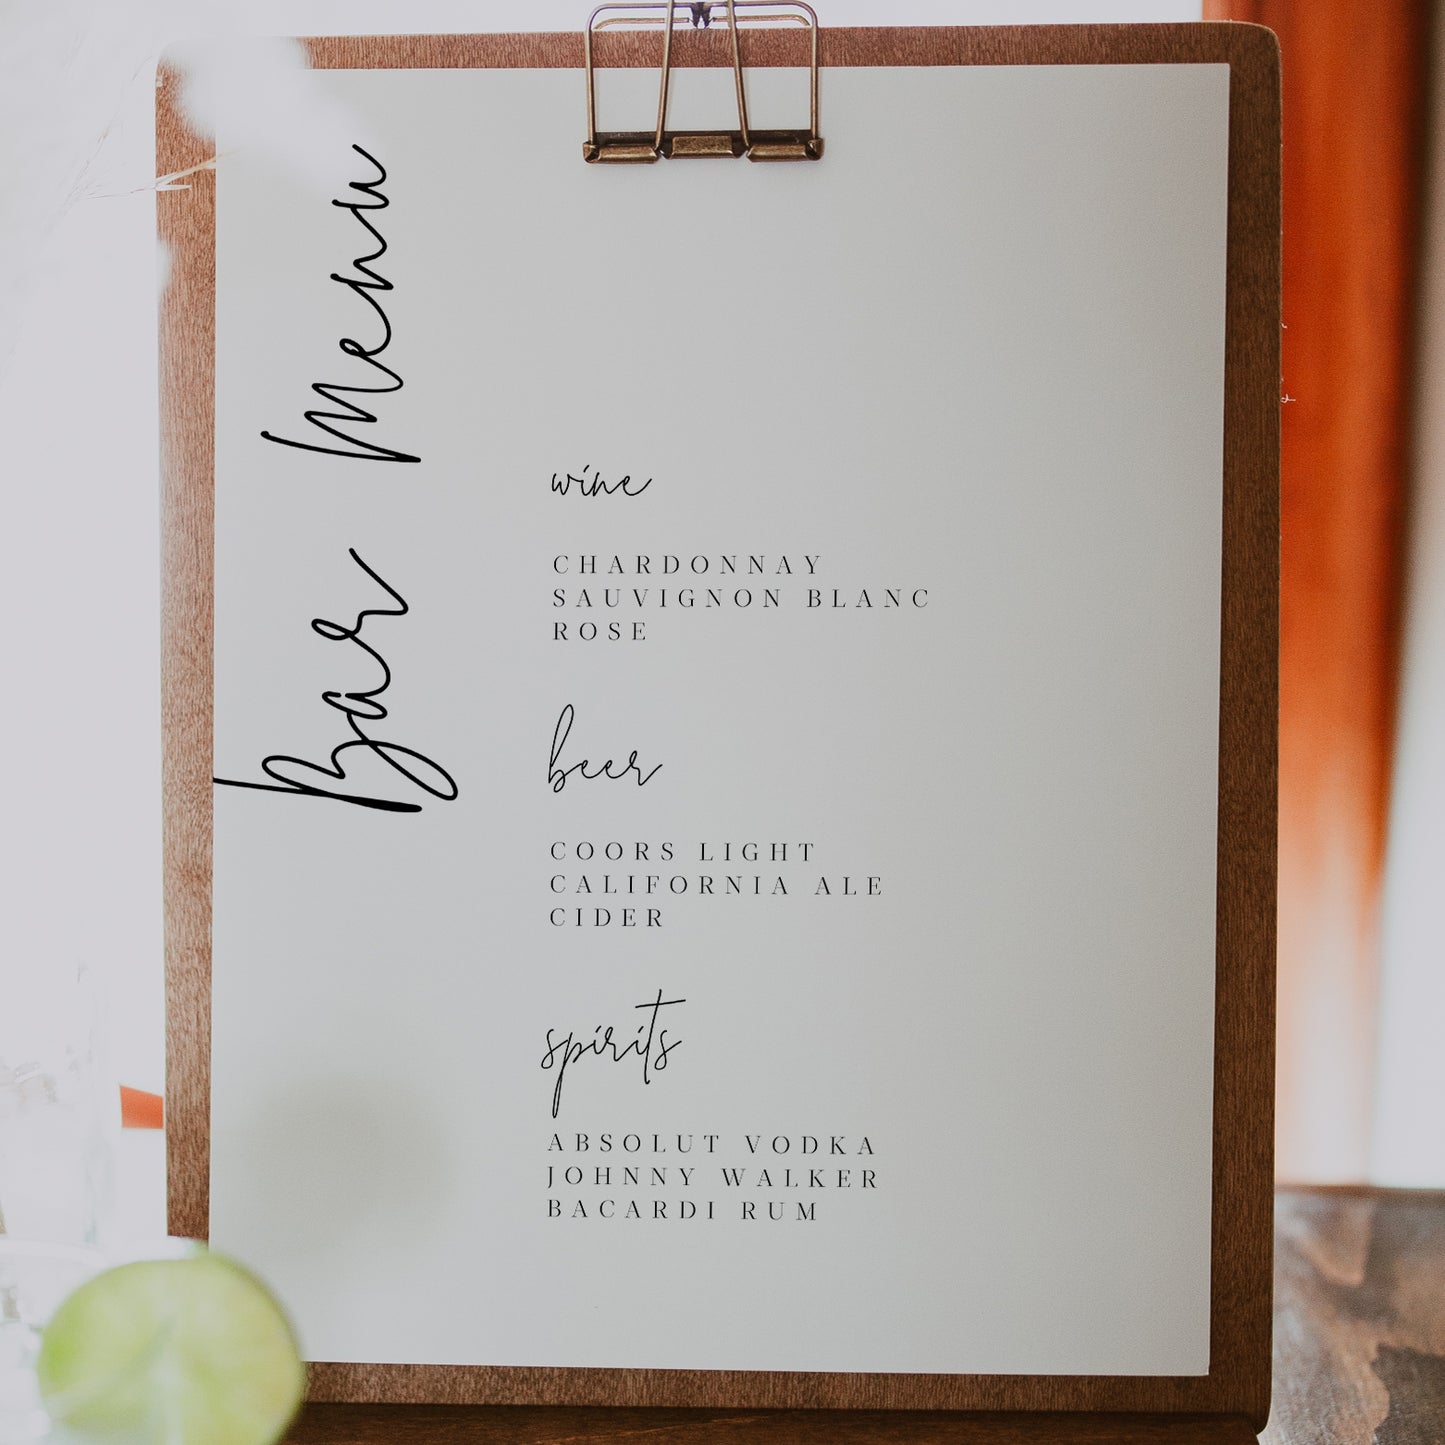 Bar Menu
wine
CHARDONNAY
SAUVIGNON BLANC
ROSE
beer
COORS LIGHT
CALIFORNIA ALE
CIDER
spirits
ABSOLUT VODKA
JOHNNY WALKER
BACARDI RUM